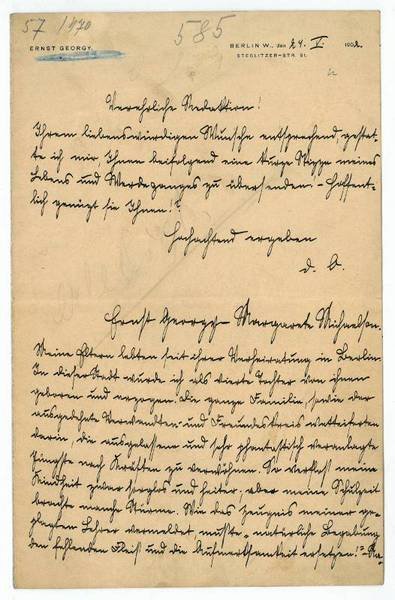 57/1970
585
ERNST GEORGY.
BERLIN W., den 24. V. 1902.
STEGLITZER-STR. 81.
Verehrliche Redaktion!
Ihrem liebenswürdigen Wunsche entsprechend, gestat-
te ich mir, Ihnen beifolgend eine kurze Skizze meines
Lebens und Werdeganges zu übersenden. – Hoffent-
lich genügt sie Ihnen!?
Hochachtend ergeben
d. O.
Ernst Georgy – Margarete Michaelson.
Meine Eltern lebten seit ihrer Verheiratung in Berlin.
In dieser Stadt wurde ich als vierte Tochter von ihnen
geboren und erzogen. Die ganze Familie, sowie der
ausgedehnte Verwandten- und Freundeskreis wetteiferten
darin, die ausgelassene und sehr phantastisch veranlagte
Jüngste nach Kräften zu verwöhnen. So verfloß meine
Kindheit zwar sorglos und heiter; aber meine Schulzeit
brachte manche Stürme. Wie das Zeugnis meiner ge-
plagten Lehrer vermeldet, mußte „natürliche Begabung
den fehlenden Fleiß und die Aufmerksamkeit ersetzen!“